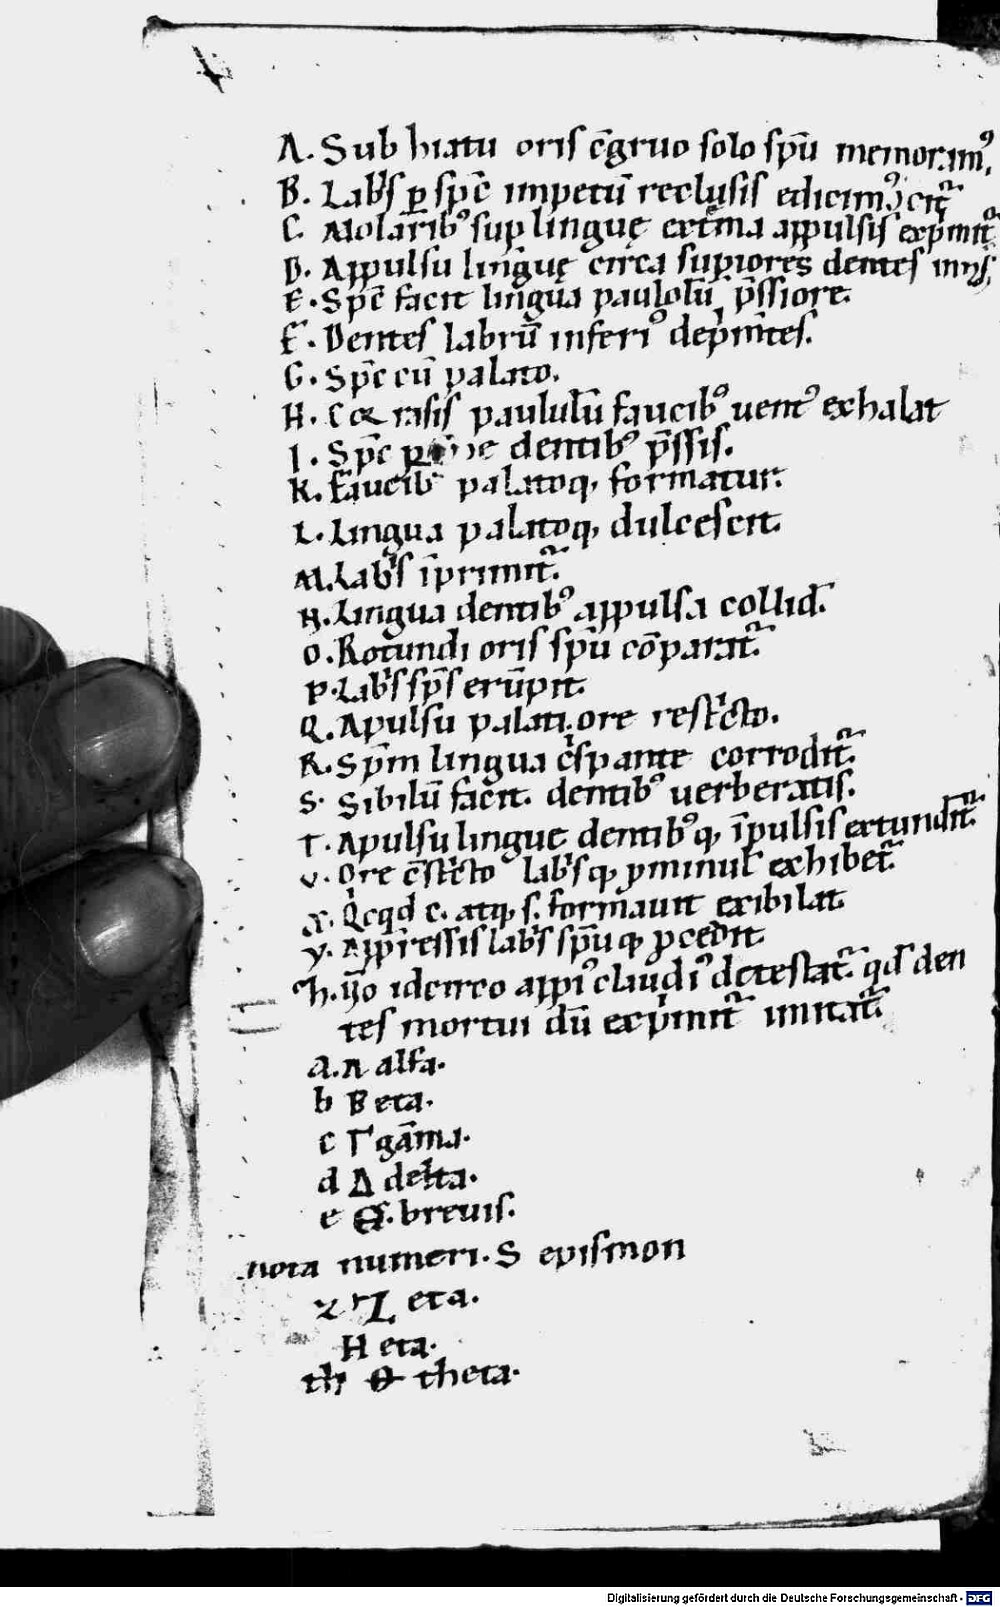 A. Sub hiatu oris c̄gruo solo sp̄u memoram᷒.
B. Lab͛s p̲ sp̄c impetū reclusis edicim᷒
C. Molarib᷒ sup linguę extima appulsis exp̍mit᷑
D. Appulsu linguę circa supiores dentes
E. Sp̄c facit lingua paulolū p̄ssiore.
F. Dentes labrū inferi᷒ dep̍mētes.
G. Sp̄c cū palato.
H. rasis paululū faucib᷒ vent᷒ exhalat
I. Sp̄c dentib᷒ p̄ssis.
K. Faucib᷒ palatoq, formatur.
L. Lingua palatoq, dulcescit.
M. Lab͛s īprimit᷑.
N. Lingua dentib᷒ appulsa collid᷑.
O. Rotundi oris sp̄u cōparat᷑.
P. Lab͛s sp̄s erūpit.
Q. Apulsu palati ore rest̍cto.
R. Sp̄m lingua c̍spante corrodit᷑.
S. Sibilū facit. dentib᷒ verberatis.
T. Apulsu lingue dentib᷒q, īpulsis extundit᷑.
v. Ore c̄st̍cto lab͛sq, pminul̄ exhibet᷑.
x. Qcqd c. atq, s. formavit exibilat
y. Appressis lab͛s sp̄uq, pcedit
Th. idcirco appi᷒ claudi᷒ detestat᷑. qd̄ den
tes mortui dū exp̍mit᷑ imitat᷑.
a. A alfa.
b B eta.
c Γ gāma.
d Δ delta.
e E. brevis.
nota numeri. S epismon
z Z eta.
H eta.
th Θ theta.
Digitalisierung gefördert durch die Deutsche Forschungsgemeinschaft - DFG